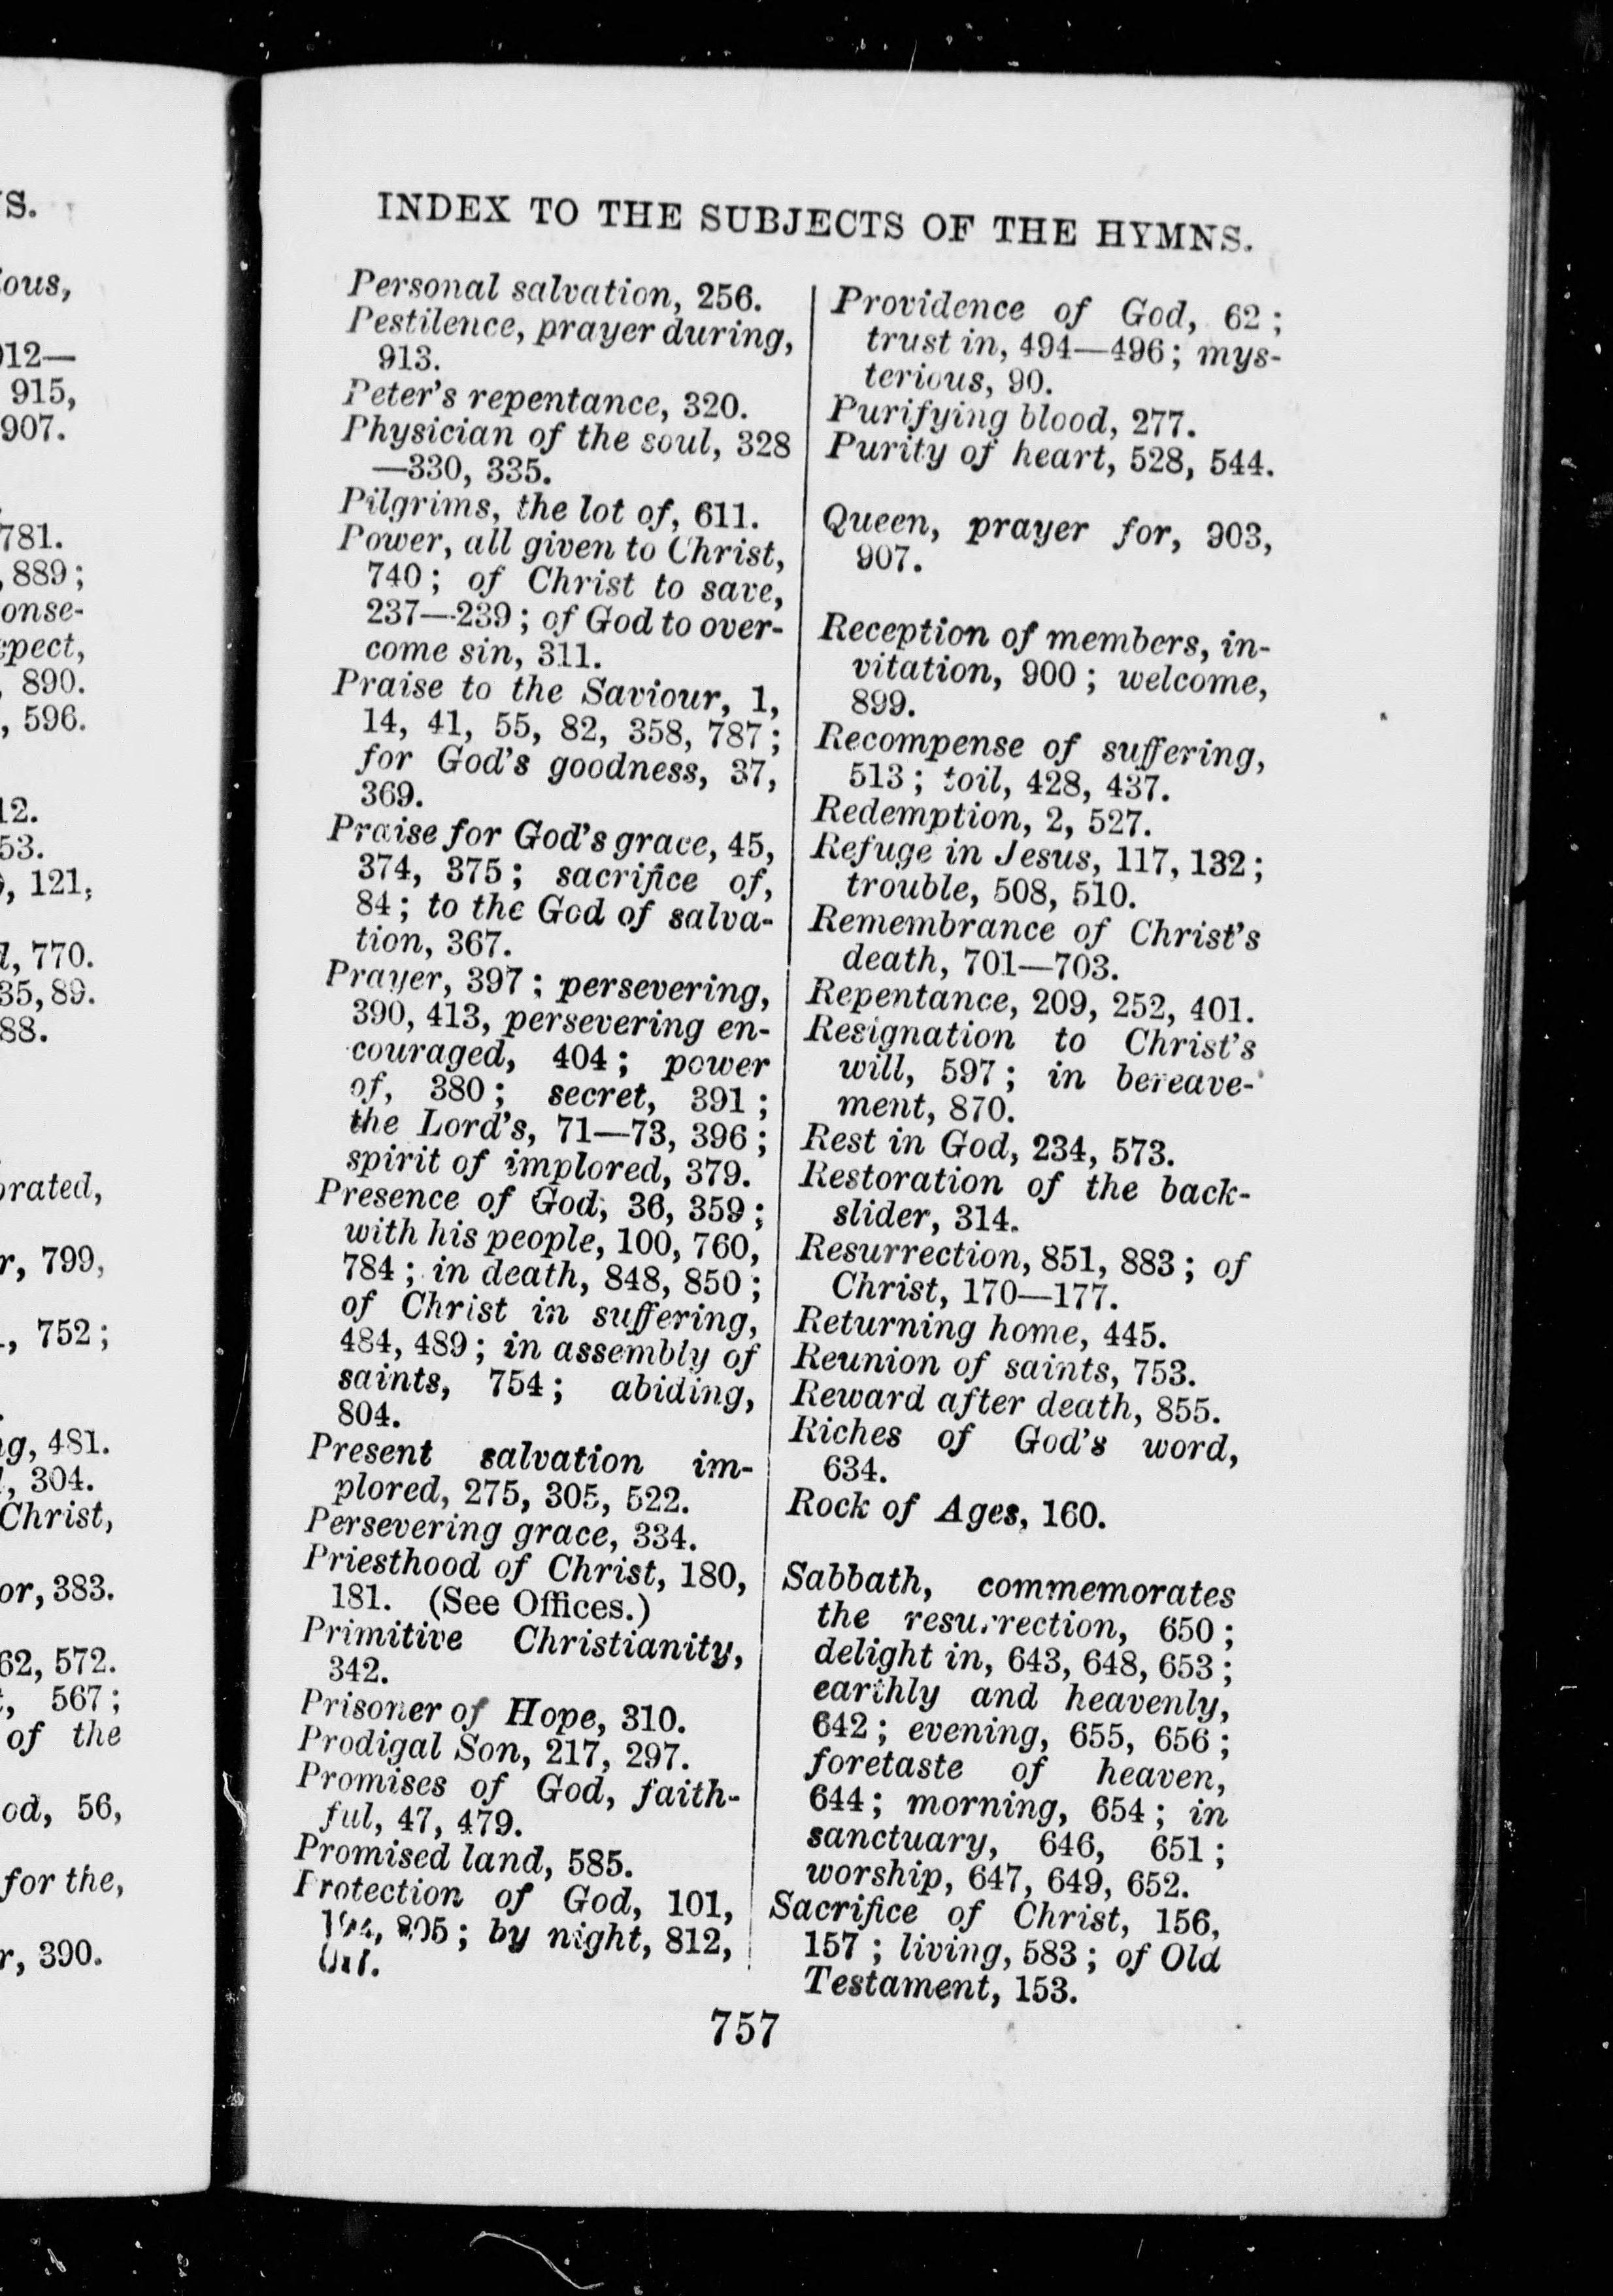 'S.
ious,
912—
915,
907.
781.
, 889;
onse-
spect,
, 890.
, 596.
12.
53.
, 121,
l, 770.
35, 89.
88.
orated,
r, 799,
, 752;
ng, 481.
, 304.
Christ,
or, 383.
62, 572.
, 567;
of the
od, 56,
for the,
r, 390.
INDEX TO THE SUBJECTS OF THE HYMNS.
Personal salvation, 256.
Pestilence, prayer during,
913.
Peter's repentance, 320.
Physician of the soul, 328
—330, 335.
Pilgrims, the lot of, 611.
Power, all given to Christ,
740; of Christ to save,
237—239; of God to over-
come sin, 311.
Praise to the Saviour, 1,
14, 41, 55, 82, 358, 787;
for God's goodness, 37,
369.
Praise for God's grace, 45,
374, 375; sacrifice of,
84; to the God of salva-
tion, 367.
Prayer, 397; persevering,
390, 413, persevering en-
couraged, 404; power
of, 380; secret, 391;
the Lord's, 71—73, 396;
spirit of implored, 379.
Presence of God, 36, 359;
with his people, 100, 760,
784; in death, 848, 850;
of Christ in suffering,
484, 489; in assembly of
saints, 754; abiding,
804.
Present salvation im-
plored, 275, 305, 522.
Persevering grace, 334.
Priesthood of Christ, 180,
181. (See Offices.)
Primitive Christianity,
342.
Prisoner of Hope, 310.
Prodigal Son, 217, 297.
Promises of God, faith-
ful, 47, 479.
Promised land, 585.
Protection of God, 101,
by night, 812,
Providence of God, 62;
trust in, 494—496; mys-
terious, 90.
Purifying blood, 277.
Purity of heart, 528, 544.
Queen, prayer for, 903,
907.
Reception of members, in-
vitation, 900; welcome,
899.
Recompense of suffering,
513; toil, 428, 437.
Redemption, 2, 527.
Refuge in Jesus, 117, 132;
trouble, 508, 510.
Remembrance of Christ's
death, 701—703.
Repentance, 209, 252, 401.
Resignation to Christ's
will, 597; in bereave-
ment, 870.
Rest in God, 234, 573.
Restoration of the back-
slider, 314.
Resurrection, 851, 883; of
Christ, 170—177.
Returning home, 445.
Reunion of saints, 753.
Reward after death, 855.
Riches of God's word,
634.
Rock of Ages, 160.
Sabbath, commemorates
the resurrection, 650;
delight in, 643, 648, 653;
earthly and heavenly,
642; evening, 655, 656;
foretaste of heaven,
644; morning, 654; in
sanctuary, 646, 651;
worship, 647, 649, 652.
Sacrifice of Christ, 156,
157; living, 583; of Old
Testament, 153.
757